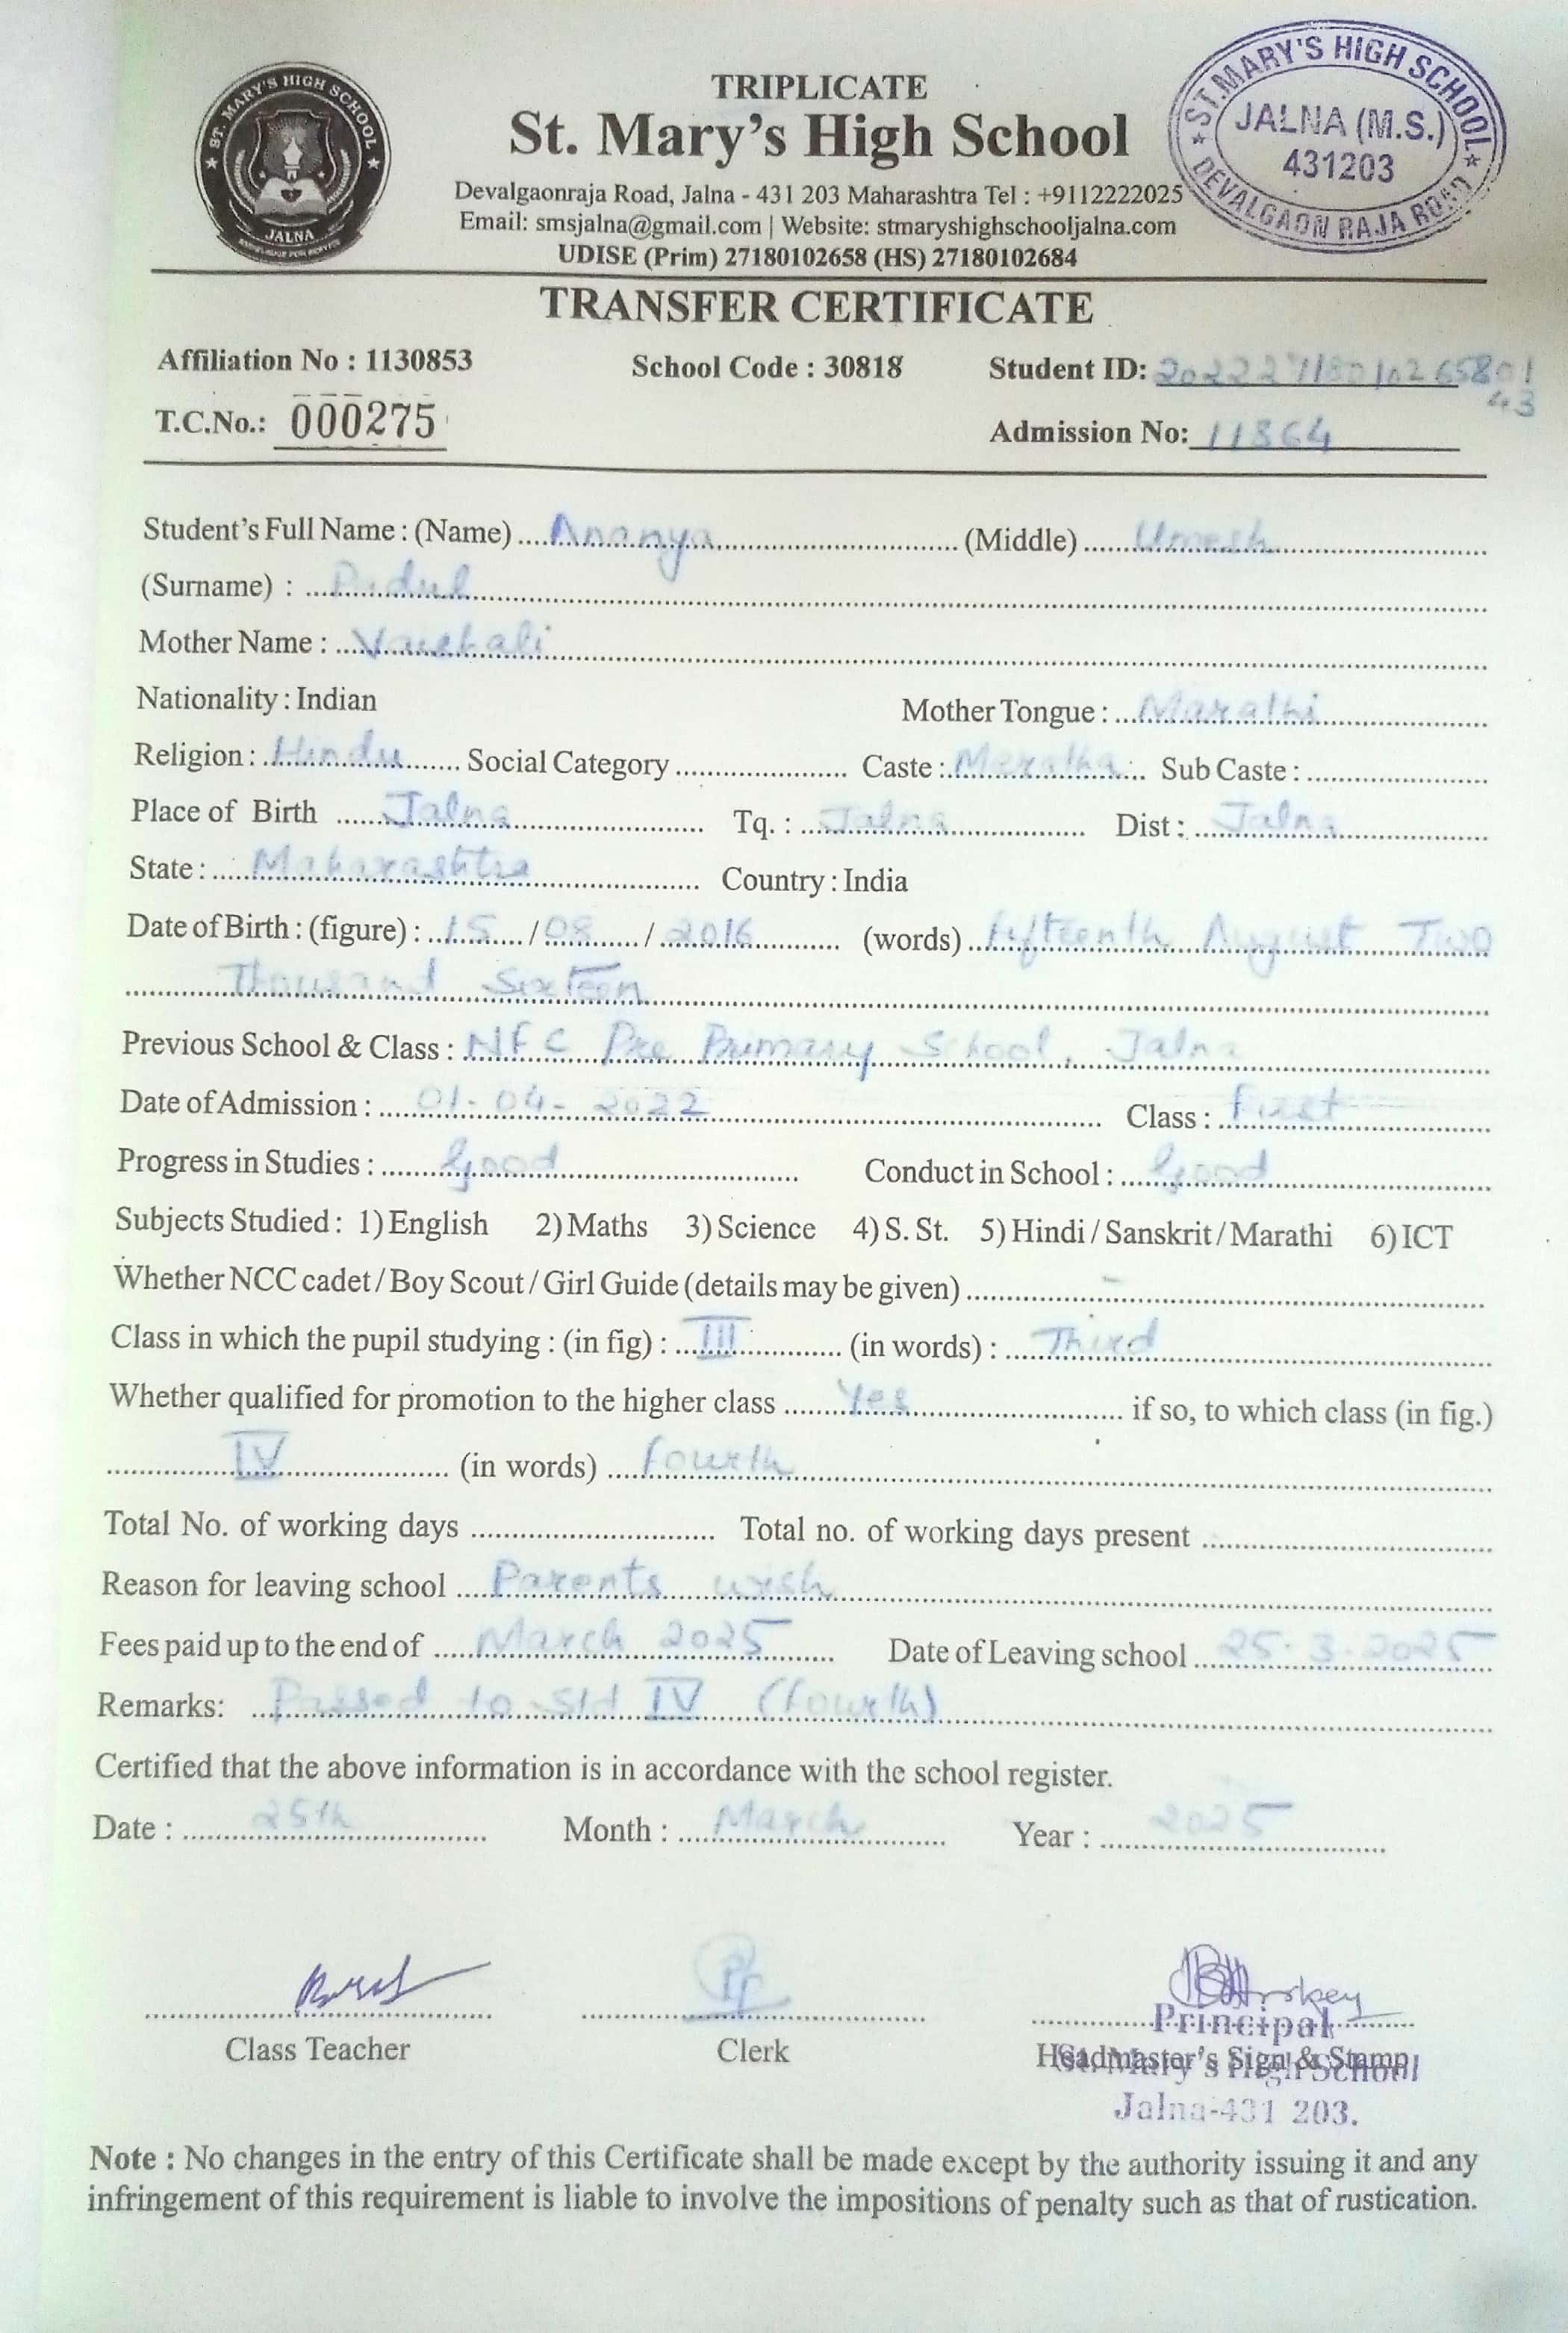 ST. MARY'S HIGH SCHOOL
JALNA
TRIPLICATE
St. Mary's High School
Devalgaonraja Road, Jalna - 431 203 Maharashtra Tel : +9112222025
Email: smsjalna@gmail.com | Website: stmaryshighschooljalna.com
UDISE (Prim) 27180102658 (HS) 27180102684
ST.MARY'S HIGH SCHOOL
JALNA (M.S.)
431203
DEVALGAON RAJA ROAD
TRANSFER CERTIFICATE
Affiliation No : 1130853 School Code : 30818 Student ID: 20222718010265801
43
T.C.No.: 000275 Admission No: 11864
Student's Full Name : (Name) Ananya (Middle) Umesh
(Surname) : Padul
Mother Name : Vaishali
Nationality : Indian Mother Tongue : Marathi
Religion : Hindu Social Category Caste : Maratha Sub Caste :
Place of Birth Jalna Tq. : Jalna Dist : Jalna
State : Maharashtra Country : India
Date of Birth : (figure) : 15 / 08 / 2016 (words) fifteenth August Two
Thousand Sixteen
Previous School & Class : NFC Pre Primary School, Jalna
Date of Admission : 01-04-2022 Class : first
Progress in Studies : Good Conduct in School : Good
Subjects Studied : 1) English 2) Maths 3) Science 4) S. St. 5) Hindi / Sanskrit / Marathi 6) ICT
Whether NCC cadet / Boy Scout / Girl Guide (details may be given) -
Class in which the pupil studying : (in fig) : III (in words) : Third
Whether qualified for promotion to the higher class Yes if so, to which class (in fig.)
IV (in words) fourth
Total No. of working days Total no. of working days present
Reason for leaving school Parents wish
Fees paid up to the end of March 2025 Date of Leaving school 25.3.2025
Remarks: Passed to Std IV (fourth)
Certified that the above information is in accordance with the school register.
Date : 25th Month : March Year : 2025
Principal
Class Teacher Clerk Headmaster's Sign & Stamp
St. Mary's High School
Jalna-431 203.
Note : No changes in the entry of this Certificate shall be made except by the authority issuing it and any
infringement of this requirement is liable to involve the impositions of penalty such as that of rustication.